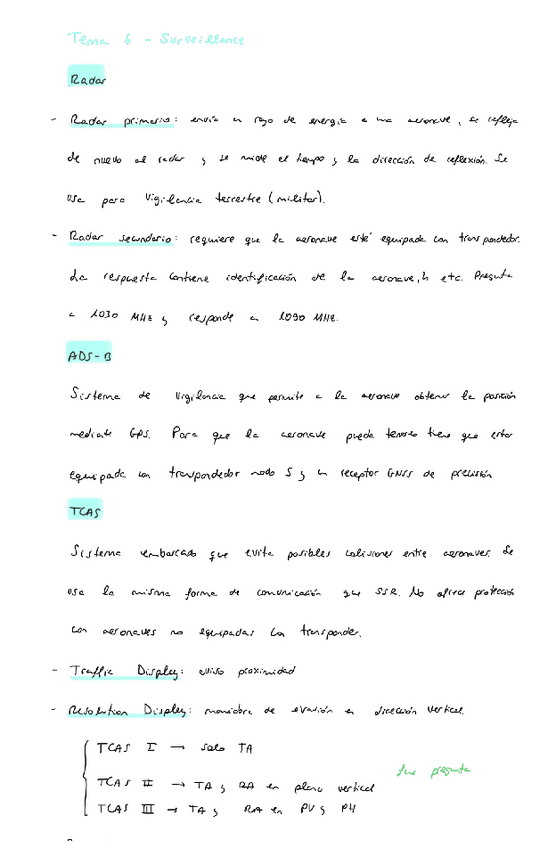 Tema 6 - Surveillance
Radar
- Radar primario: envía un rayo de energía a una aeronave, se refleja
de nuevo al radar y se mide el tiempo y la dirección de reflexión. Se
usa para vigilancia terrestre (militar).
- Radar secundario: requiere que la aeronave esté equipada con transpondedor.
La respuesta contiene identificación de la aeronave, h etc. Pregunta
a 1030 MHz y responde en 1090 MHz.
ADS-B
Sistema de vigilancia que permite a la aeronave obtener la posición
mediante GPS. Para que la aeronave pueda tenerlo tiene que estar
equipada con transpondedor modo S y un receptor GNSS de precisión
TCAS
Sistema embarcado que evita posibles colisiones entre aeronaves. Se
usa la misma forma de comunicación que SSR. No ofrece protección
con aeronaves no equipadas con transponder.
- Traffic Display: aviso proximidad
- Resolution Display: maniobra de evasión en dirección vertical.
TCAS I → solo TA
TCAS II → TA y RA en plano vertical
fue pregunta
TCAS III → TA y RA en PV y PH